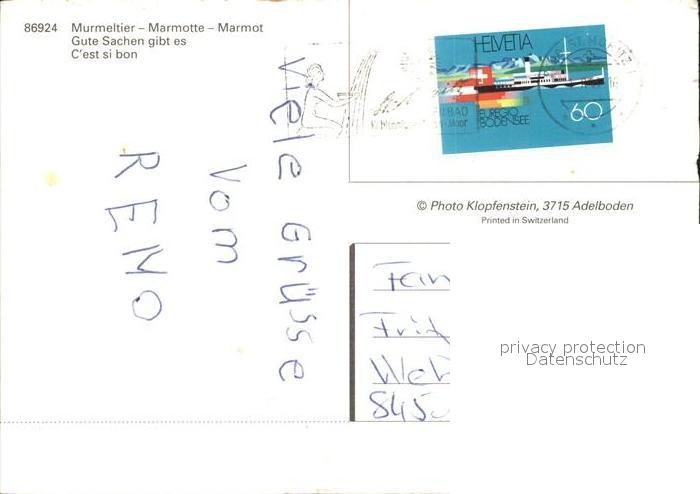 86924 Murmeltier – Marmotte – Marmot
Gute Sachen gibt es
C'est si bon
HELVETIA
EUREGIO
BODENSEE
60
© Photo Klopfenstein, 3715 Adelboden
Printed in Switzerland
Viele Grüsse
Vom
REMO
Fam
Frit
Web
845
privacy protection
Datenschutz